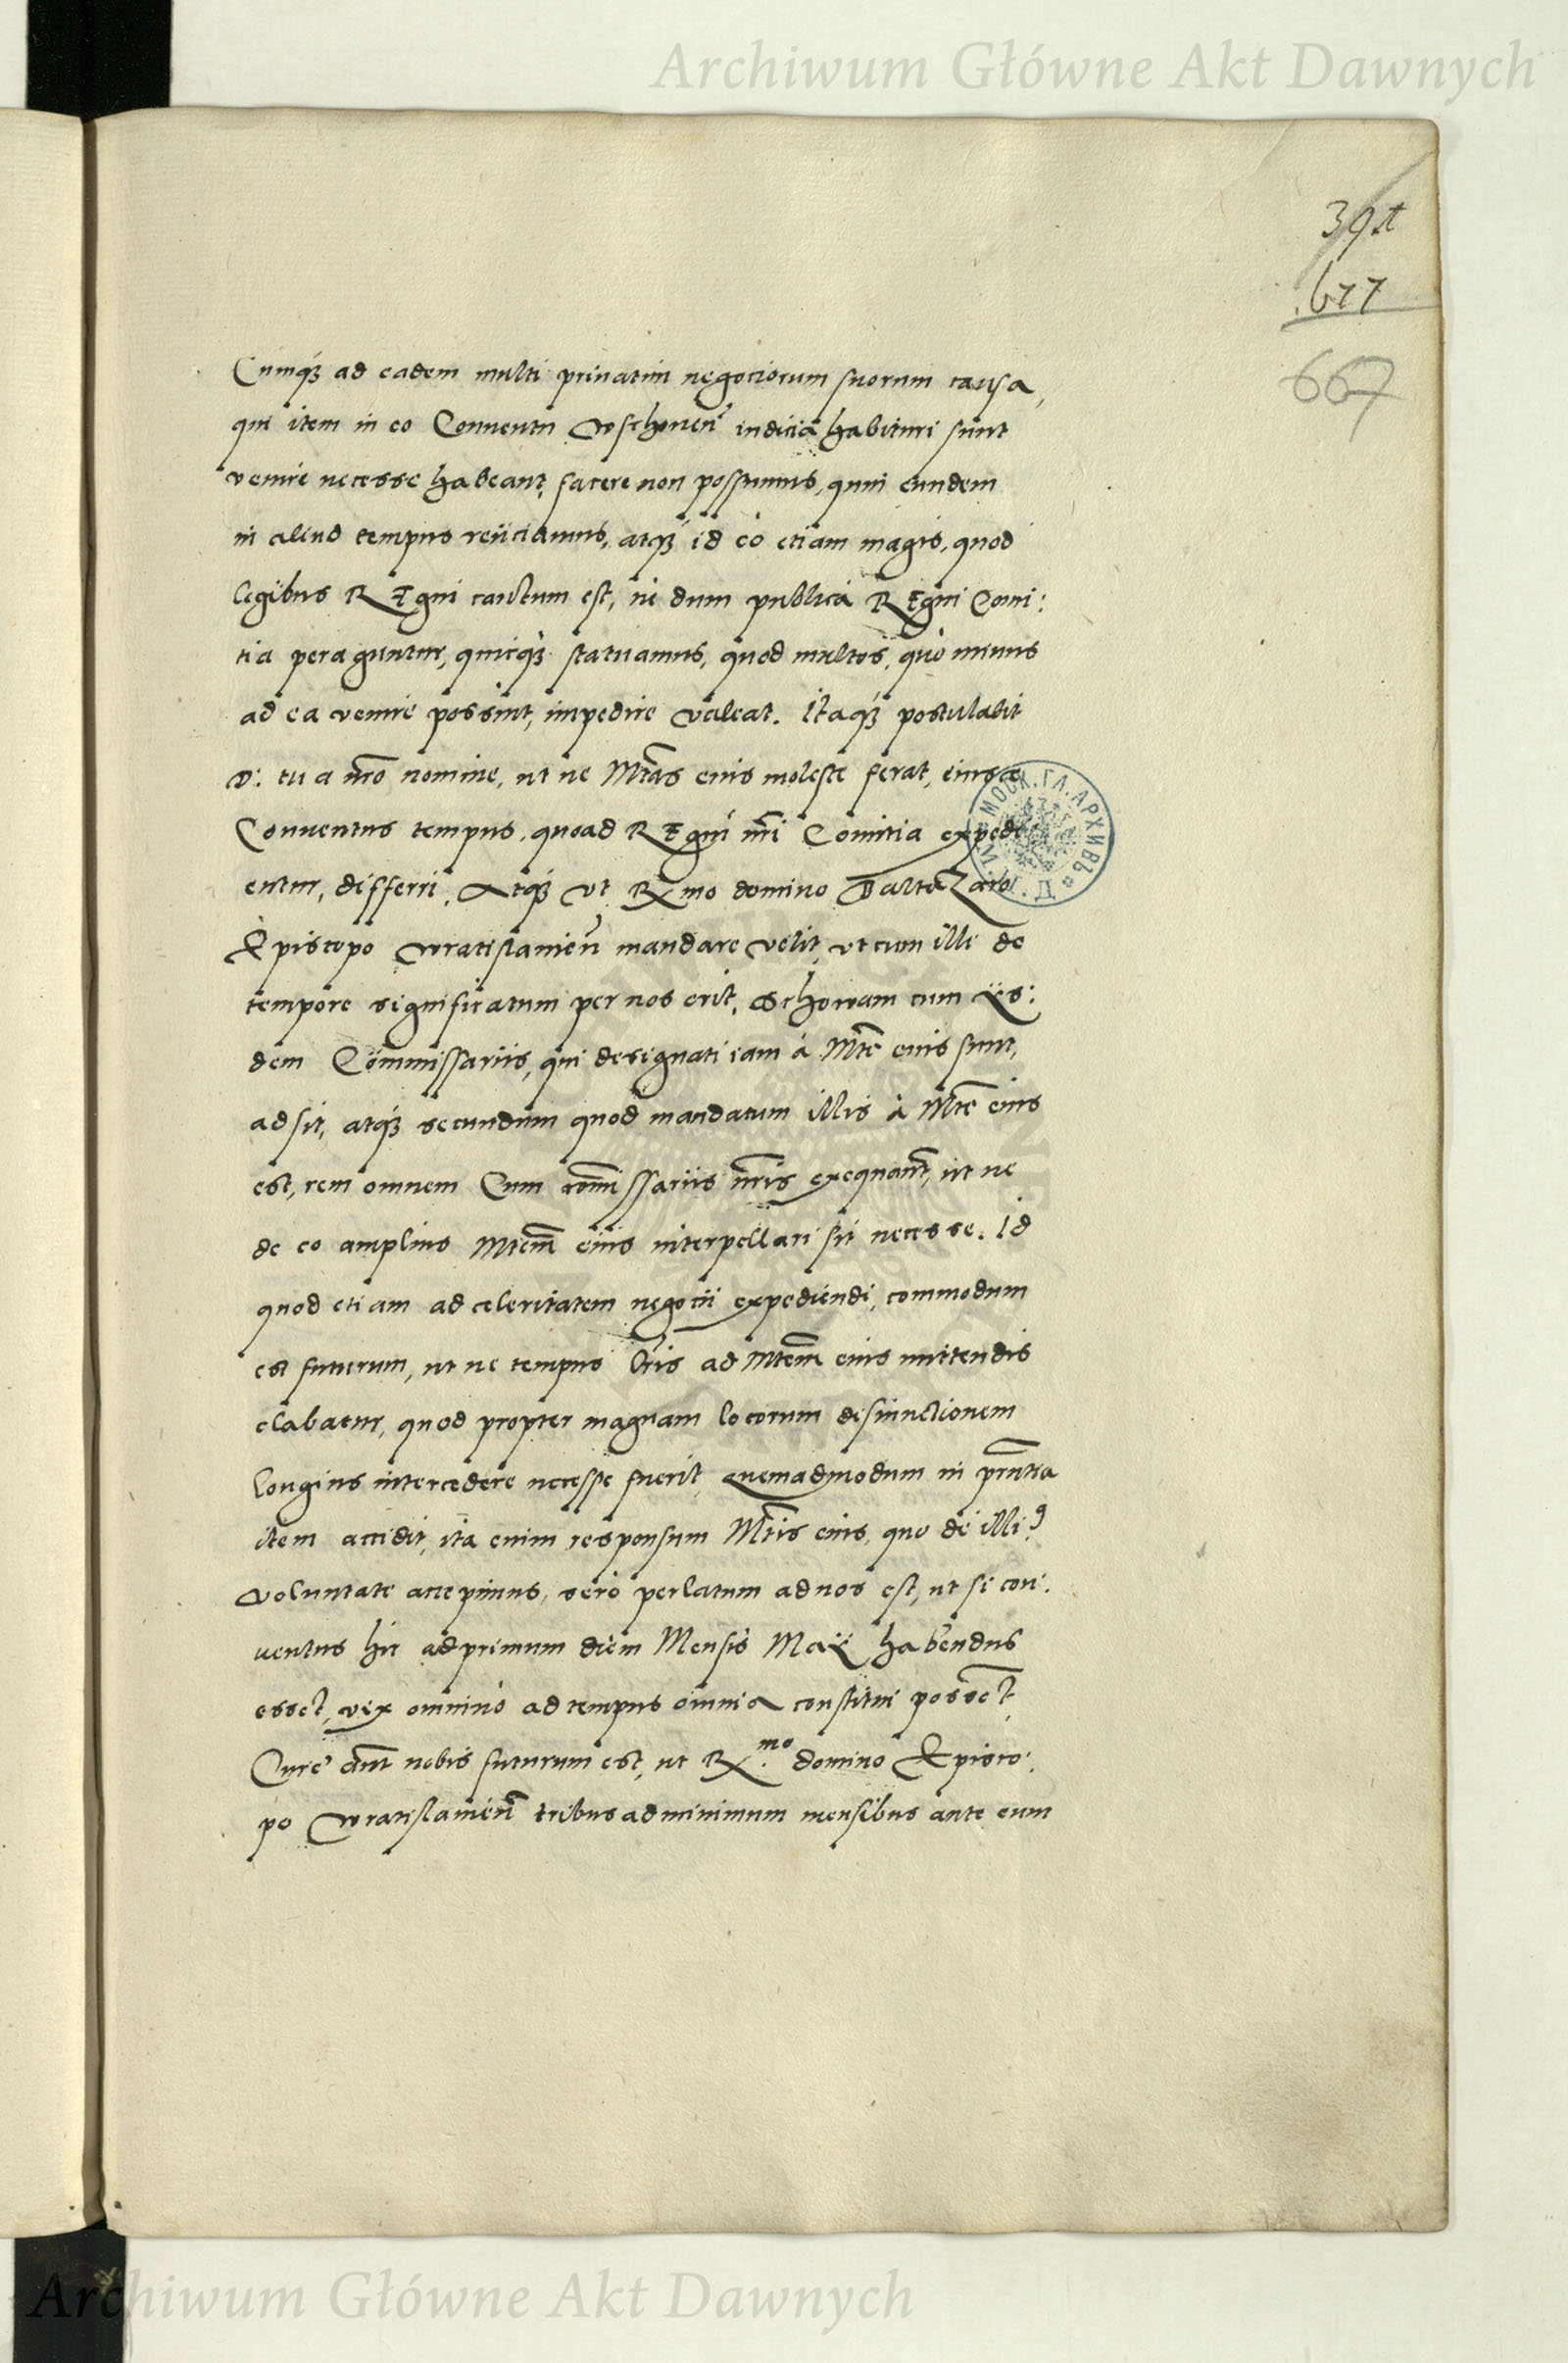 Archiwum Główne Akt Dawnych
391
677
667
Cumq́ȝ ad eadem multi priuatim negociorum suorum causa,
qui item in eo Conuentu Wschouen̄ iudicia habituri sunt
venire necesse habeant, facere non possumus, quin eundem
in aliud tempus reiiciamus, atq́ȝ id eò etiam magis, quod
legibus REgni cautum est, nè dum publica REgni Comi:
tia peraguntur, quicq̀ȝ statuamus, quod multos, quò minus
ad ea venire possint, impedire valeat. Itaq́ȝ postulabit
D: tua nr̄o nomine, ut ne Mtas eius moleste ferat, eiusce
Conuentus tempus, quoad REgni nr̄i Comitia expedi
entur, differri. Atq́ȝ vt Rx̄mo domino BaltaZaro
Episcopo Wratislauien̄ mandare velit, vt cum illi de
tempore significatum per nos erit, Schowam cum ijs:
dem Commissariis, qui designati iam à Mte eius sunt,
adsit, atq́ȝ secundum quod mandatum illis à Mte eius
est, rem omnem Cum com̄issariis nr̄is exequant̄, ut ne
de eo amplius Mtem eius interpellari sit necesse. Id
quod etiam ad celeritatem negocii expediendi, commodum
est futurum, ut ne tempus lr̄is ad Mtem eius mittendis
elabatur, quod propter magnam locorum disiunctionem
longius intercedere necesse fuerit, quemadmodum in pr̄ntia
item accidit, ita enim responsum Mtis eius, quo de illiꝰ
voluntate accepimus, serò perlatum ad nos est, ut si con:
uentus hic ad primum diem Mensis Maij habendus
esset, vix omnino ad tempus omnia constitui possent,
Cure aut̄ nobis futurum est, ut Rx.mo domino Episco:
po Wratislauien̄ tribus ad minimum mensibus ante eum
МОСК. ГЛ. АРХИВЪ
Archiwum Główne Akt Dawnych